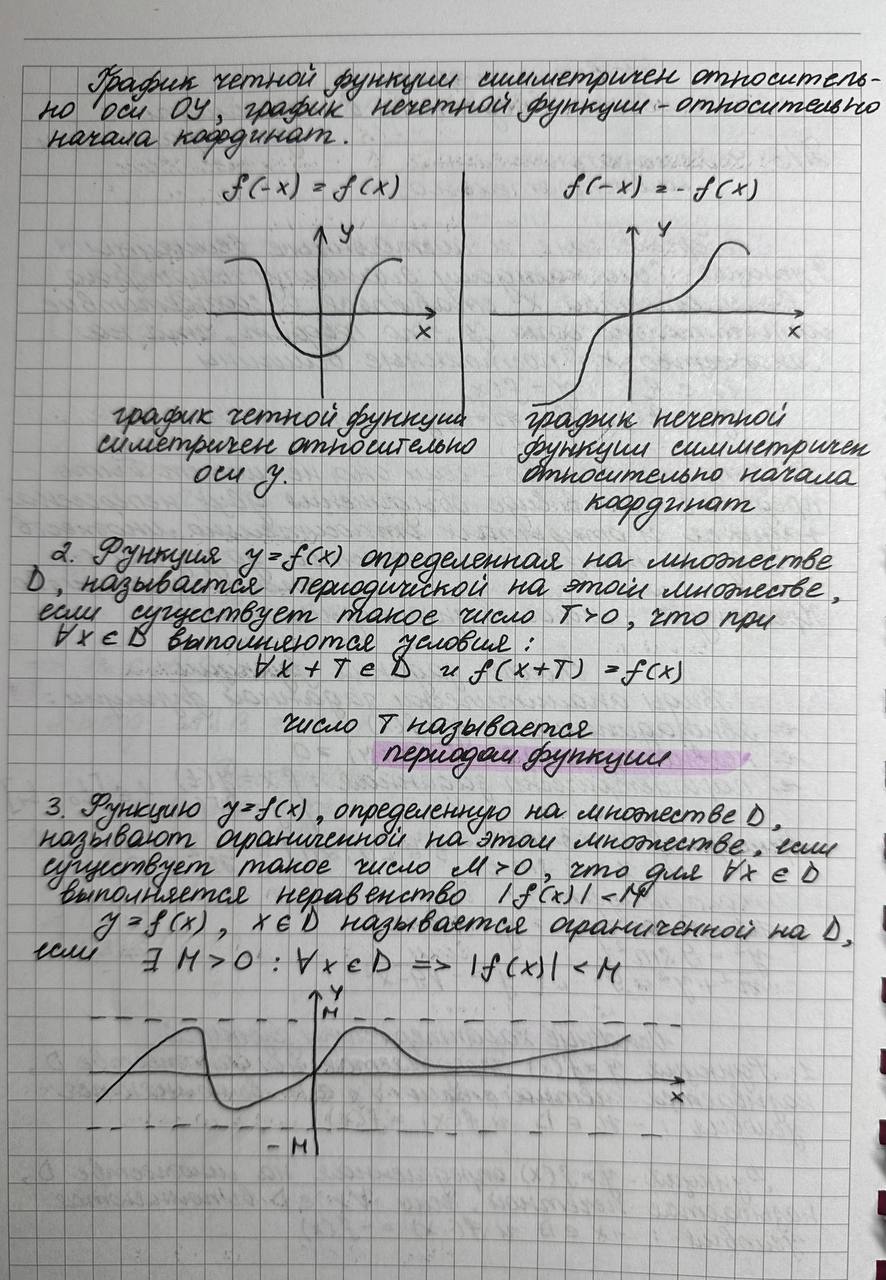 График четной функции симметричен относитель-
но оси OY, график нечетной функции - относительно
начала координат.
f(-x) = f(x)
f(-x) = - f(x)
y
x
y
x
график четной функции
симетричен относительно
оси y.
график нечетной
функции симметричен
относительно начала
координат
2. Функция y=f(x) определенная на множестве
D, называется периодической на этом множестве,
если существует такое число T>0, что при
∀x ∈ D выполняются условия:
∀x + T ∈ D и f(x+T) = f(x)
число T называется
периодом функции
3. Функцию y=f(x), определенную на множестве D,
называют ограниченной на этом множестве, если
существует такое число M>0, что для ∀x ∈ D
выполняется неравенство |f(x)| < M
y=f(x), x∈D называется ограниченной на D,
если ∃ M > 0 : ∀x ∈ D => |f(x)| < M
y
M
x
- M